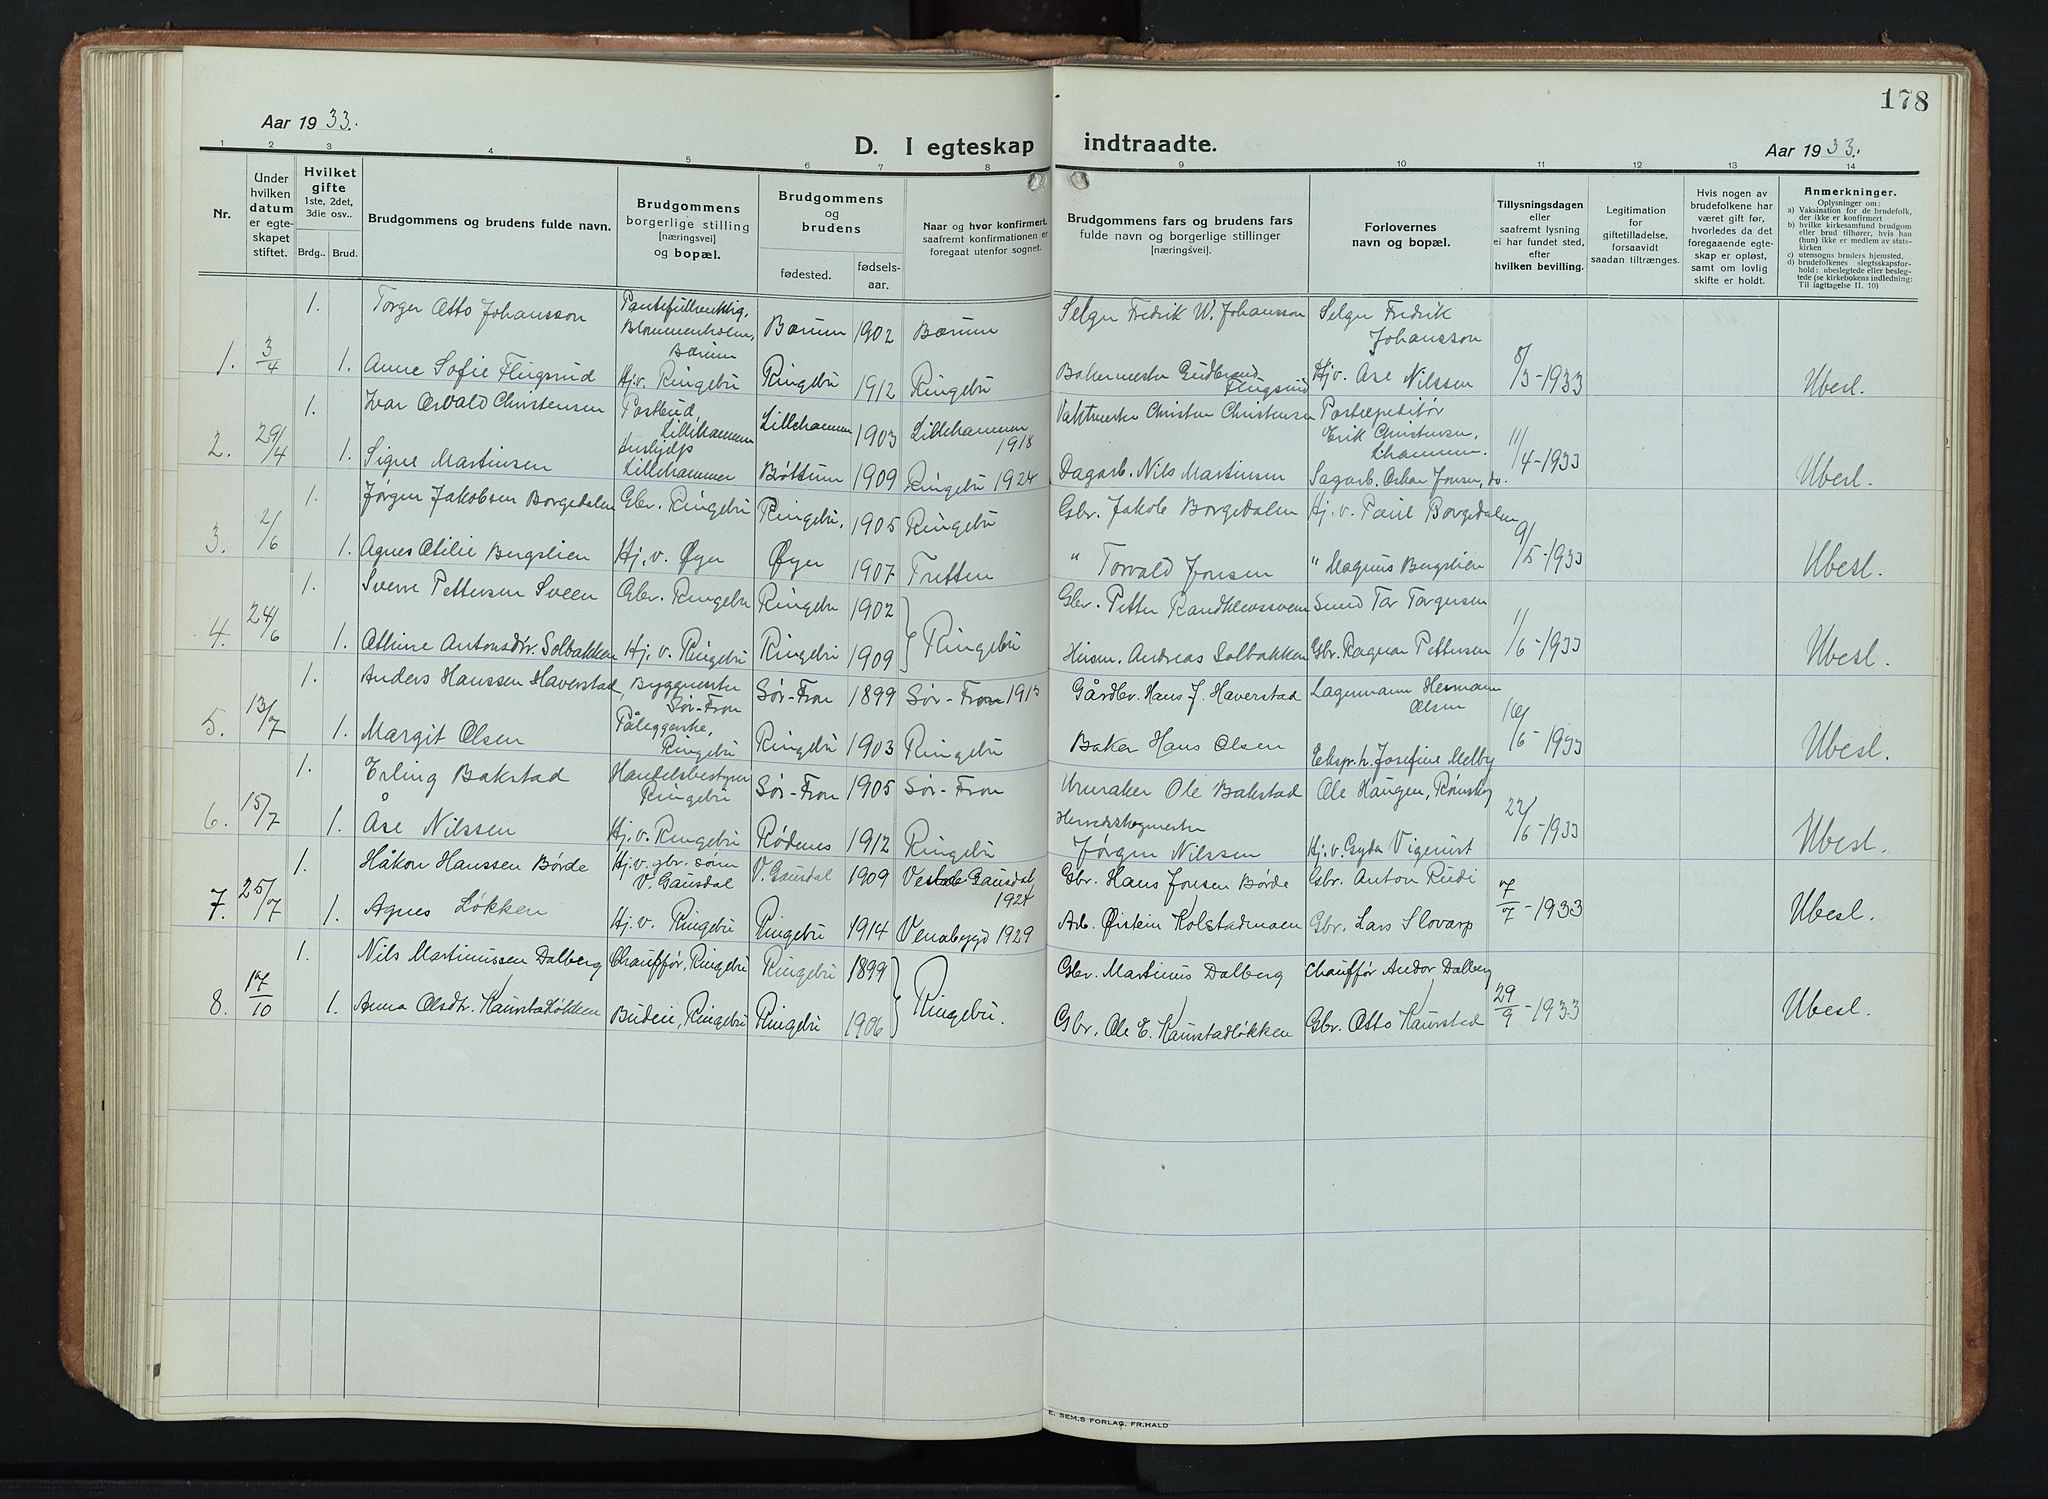 178
Aar 1933.
D. I egteskap indtraadte.
Aar 1933.
1 2 3 4 5 6 7 8 9 10 11 12 13 14
Nr.
Under hvilken datum er egteskapet stiftet.
Hvilket gifte 1ste, 2det, 3die osv..
Brdg.. Brud.
Brudgommens og brudens fulde navn.
Brudgommens borgerlige stilling [næringsvei] og bopæl.
Brudgommens og brudens
fødested. fødsels-aar.
Naar og hvor konfirmert, saafremt konfirmationen er foregaat utenfor sognet.
Brudgommens fars og brudens fars fulde navn og borgerlige stillinger [næringsvei].
Forlovernes navn og bopæl.
Tillysningsdagen eller saafremt lysning ei har fundet sted, efter hvilken bevilling.
Legitimation for giftetilladelse, forsaavidt saadan tiltrænges.
Hvis nogen av brudefolkene har været gift før, hvorledes da det foregaaende egteskap er opløst, samt om lovlig skifte er holdt.
Anmerkninger.
Oplysninger om:
a) Vaksination for de brudefolk, der ikke er konfirmert
b) hvilke kirkesamfund brudgom eller brud tilhører, hvis han (hun) ikke er medlem av statskirken
c) utensogns bruders hjemsted,
d) brudefolkenes slegtsskapsforhold: ubeslegtede eller beslegtede (se kirkebokens indledning: Til iagttagelse II. 10)
1. Torger Otto Johansson Blommenholm, Bærum Bærum 1902 Bærum Selgr Fredrik W. Johansson Selgr Fredrik Johansson
1. 3/4 1. Anne Sofie Flugsrud Hj.v. Ringebu Ringebu 1912 Ringebu Bakermester Gudbrand Flugsrud Hj v. Åse Nilssen 8/3-1933 Ubesl.
1. Ivar Osvald Christensen Postbud, Lillehammer Lillehammer 1903 Lillehammer 1918 Vaktmester Christen Christensen Postexpeditør Erik Christensen, Lhammer.
2. 29/4 1. Signe Martinsen Hushjelp Lillehammer Bøttum 1909 Ringebu 1924 Dagarb. Nils Martinsen Sagarb. Oskar Jonsen, do. 11/4-1933 Ubesl.
1. Jørgen Jakobsen Borgedalen Gbr. Ringebu Ringebu, 1905 Ringebu Gbr. Jakob Borgedalen Hj. v. Paul Borgedalen
3. 2/6 1. Agnes Otilie Bergslien Hj. v. Øyer Øyer 1907 Tretten " Torvald Jonsen " Magnus Bergslien 9/5-1933 Ubesl.
1. Sverre Pettersen Sveen Gbr. Ringebu Ringebu 1902 Ringebu Gbr. Petter Randklevssveen Smed Tor Torgersen
4. 24/6 1. Othine Antonsdtr. Solbakken Hj. v. Ringebu Ringebu 1909 Husm. Andreas Solbakken Gbr. Ragnar Pettersen 1/6-1933 Ubesl.
1. Anders Hanssen Haverstad Byggmester Sør-Fron Sør-Fron 1899 Sør-Fron 1913 Gårdbr. Hans J. Haverstad Lagermann Hermann Olsen
5. 13/7 1. Margit Olsen Ringebu Ringebu 1903 Ringebu Baker Hans Olsen Eksp.h. Josefine Melby 16/6-1933 Ubesl.
1. Erling Bakstad Handelsbestyrer Ringebu Sør-Fron 1905 Sør-Fron Urmaker Ole Bakstad Ole Haugen,
6. 15/7 1. Åse Nilssen Hj. v. Ringebu Rødenes 1912 Ringebu Herredskogmester Jørgen Nilssen Hj. v. Gyda Vigerust 22/6-1933 Ubesl.
1. Håkon Hanssen Børde Hj. v. gbr. sønn V. Gausdal V. Gausdal 1909 Gausdal 1924 Gbr. Hans Jonsen Børde Gbr. Anton Rudi
7. 25/7 1. Agnes Løkken Hj. v. Ringebu Ringebu 1914 Venabygd 1929 Arb. Øistein Kolstadmoen Gbr. Lars Slovarp 7/7-1933 Ubesl.
1. Nils Martinussen Dalberg Chauffør, Ringebu Ringebu 1899 Ringebu. Gbr. Martinus Dalberg Chauffør Andor Dalberg
8. 17/10 1. Anna Olsdtr. Kaurstadløkken Budeie, Ringebu Ringebu 1906 Gbr. Ole E. Kaurstadløkken Gbr. Otto Kaurstad 29/9-1933 Ubesl.
E. SEM,S FORLAG. FR.HALD